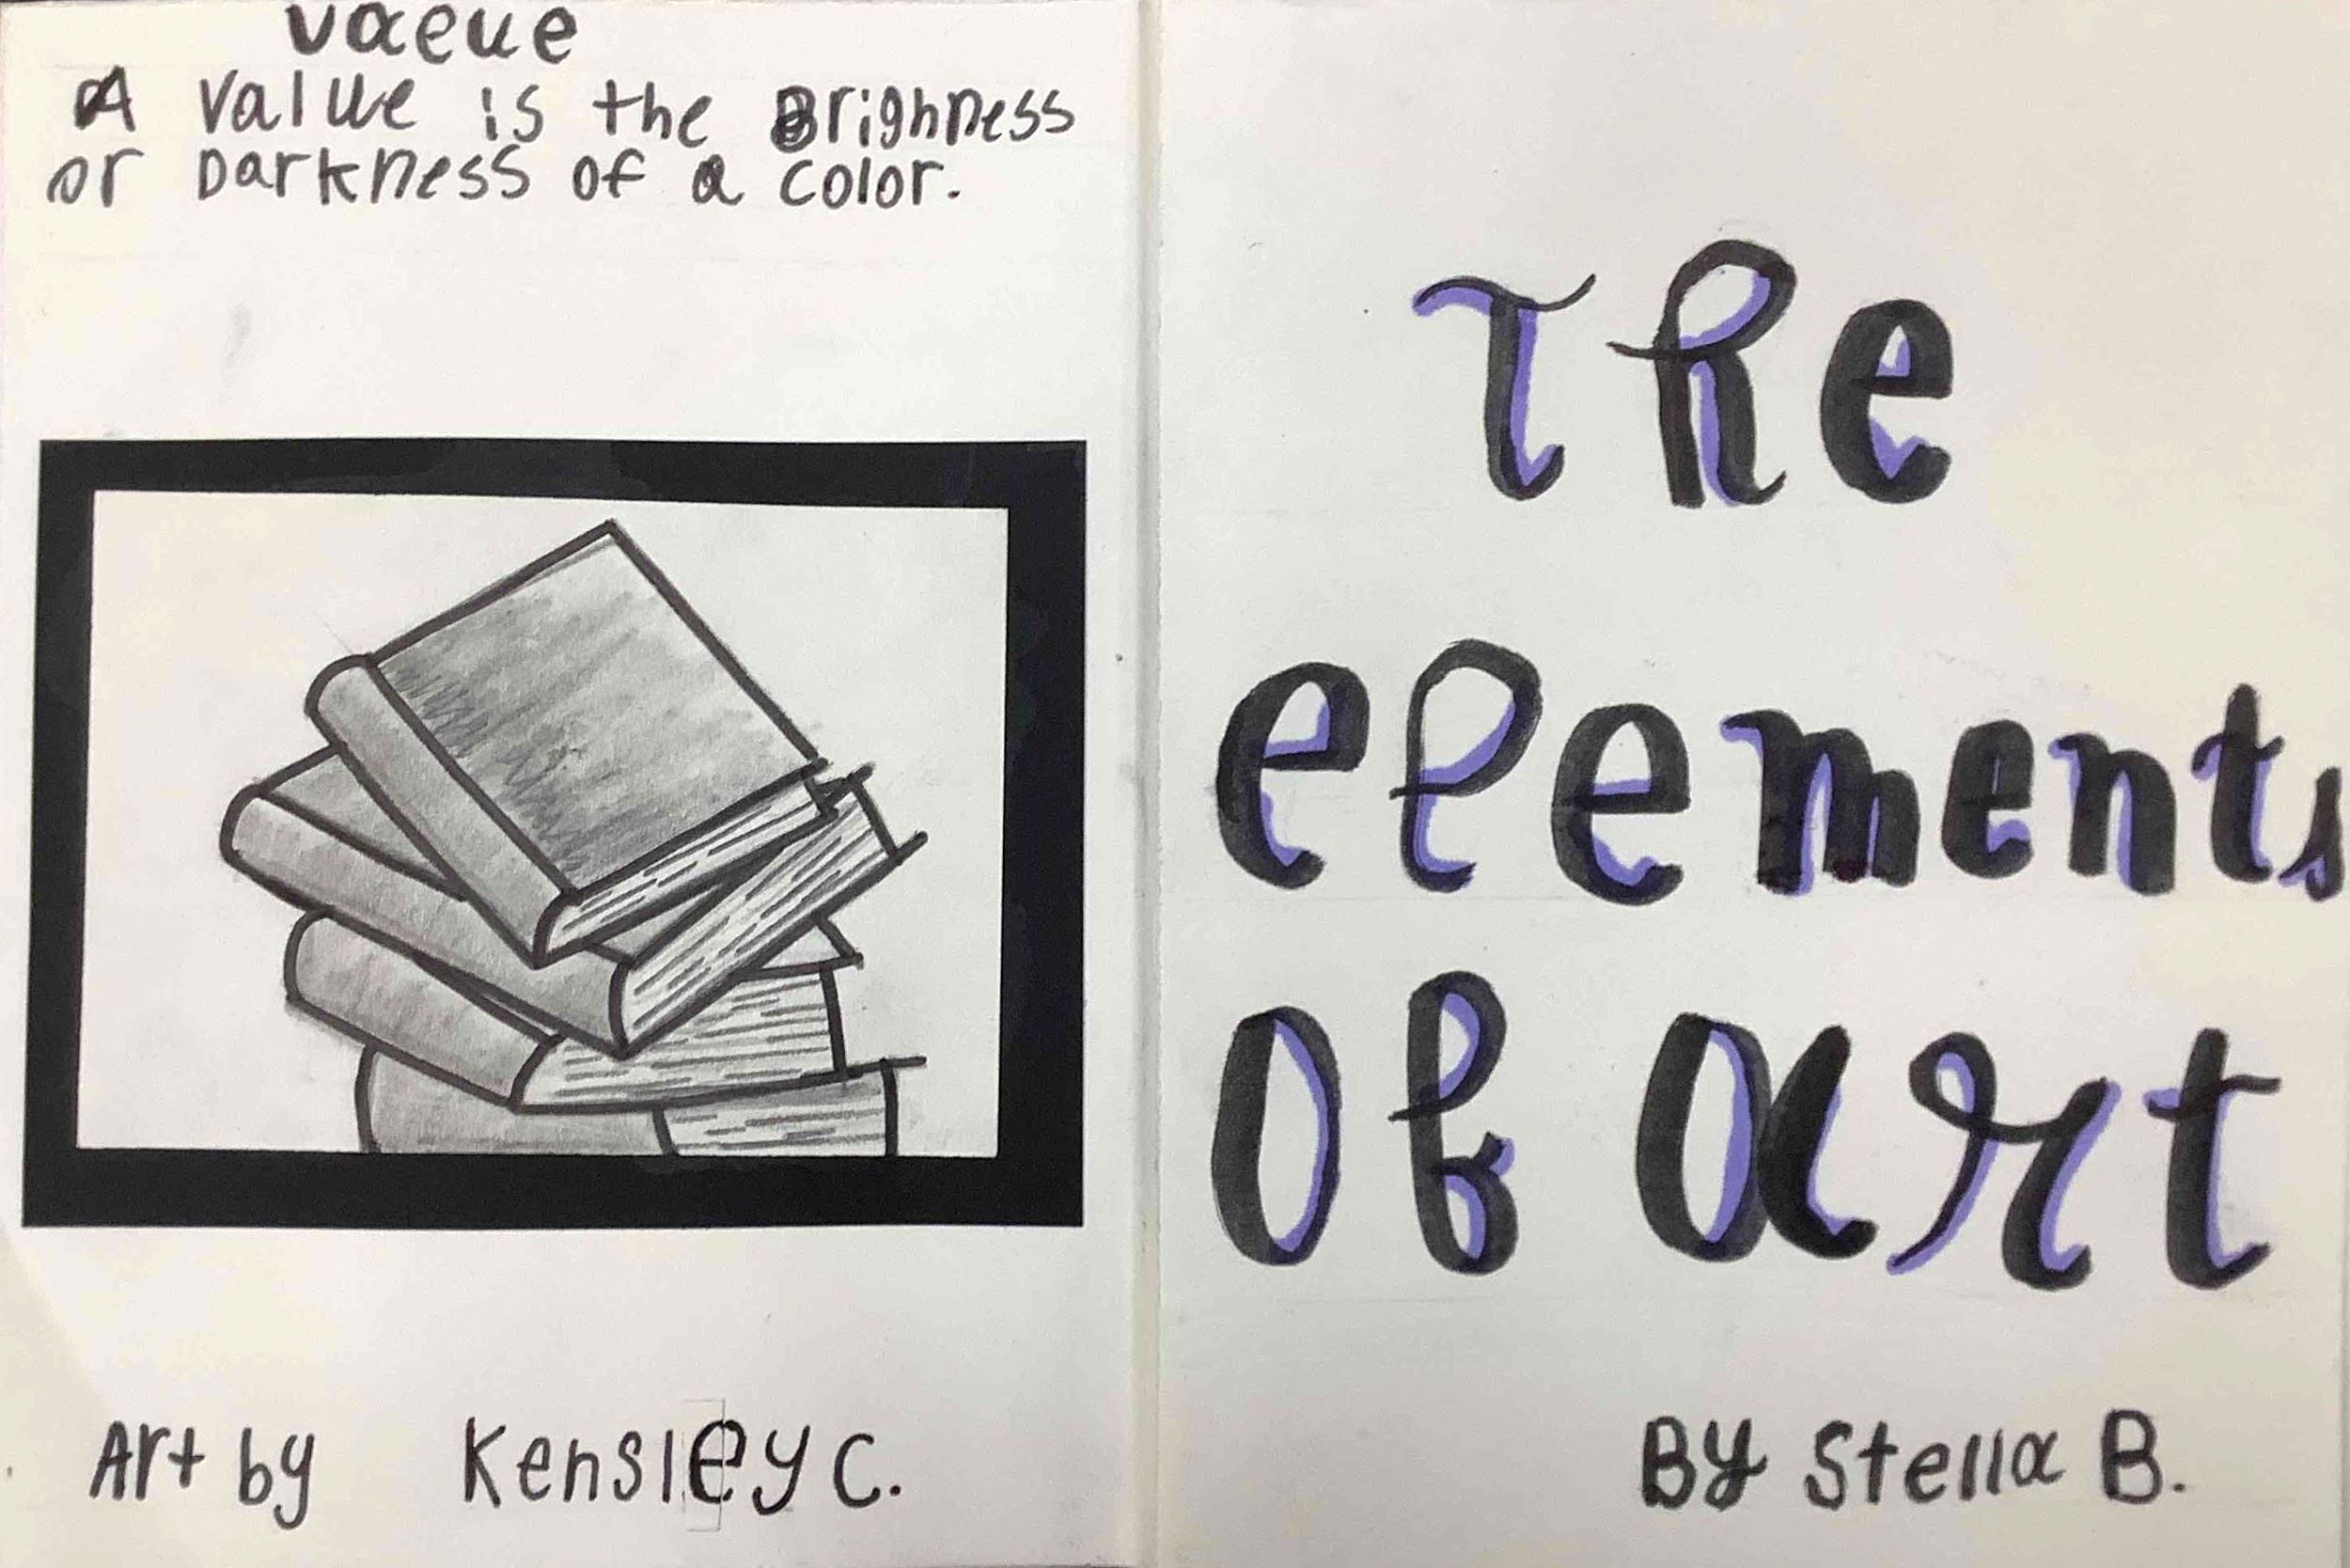 value
A value is the Brighness
or Darkness of a color.
Art by Kensley C.
The
elements
Of art
By Stella B.